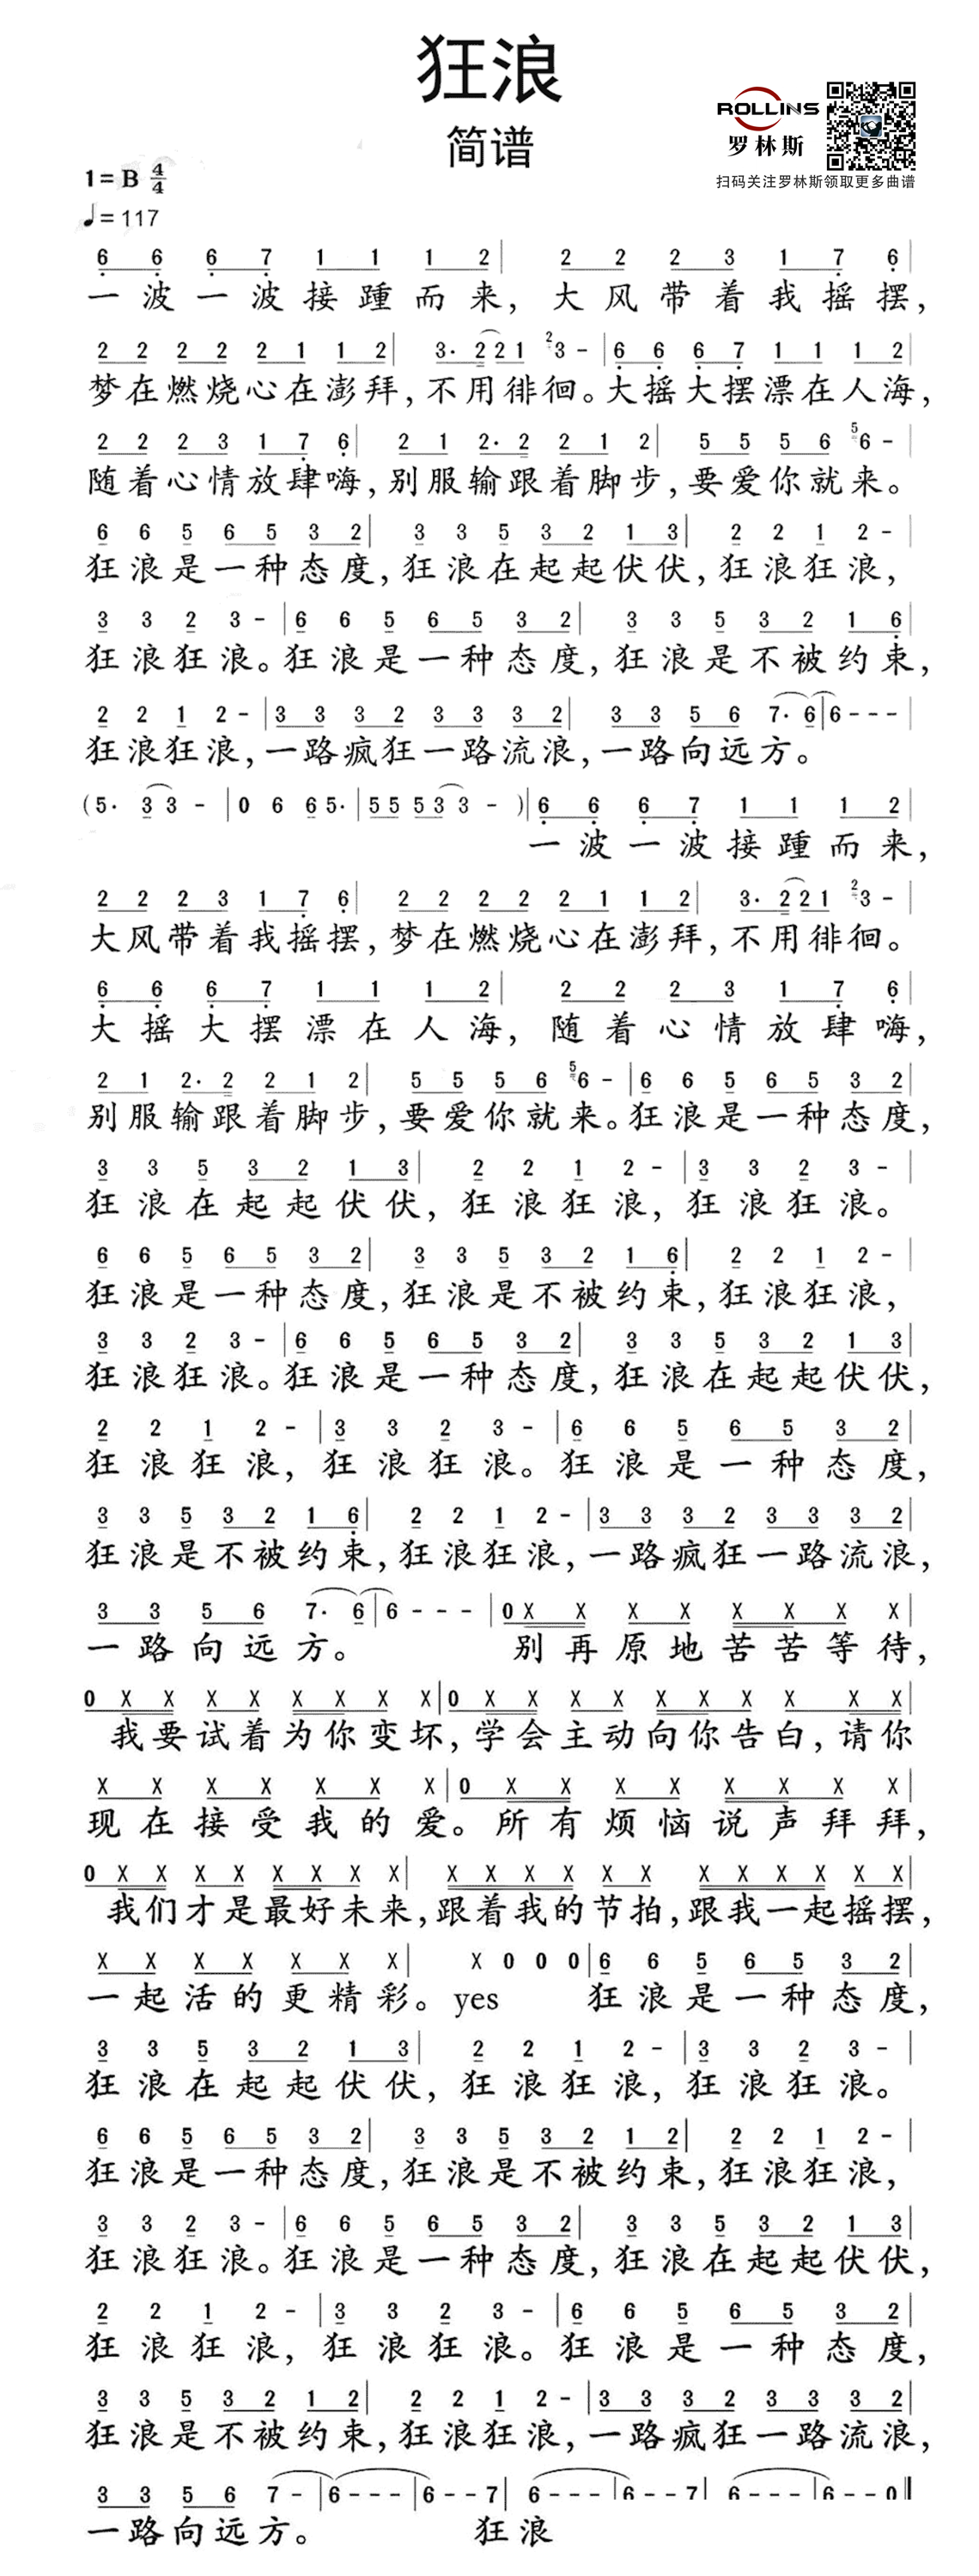 狂浪
简谱
ROLLINS
罗林斯
扫码关注罗林斯领取更多曲谱
1=B 4/4
♩=117
6 6 6 7 1 1 1 2| 2 2 2 3 1 7 6|
一波一波接踵而来，大风带着我摇摆，
2 2 2 2 2 1 1 2| 3· 2 2 1 ²3 -|6 6 6 7 1 1 1 2|
梦在燃烧心在澎拜，不用徘徊。大摇大摆漂在人海，
2 2 2 3 1 7 6| 2 1 2· 2 2 1 2| 5 5 5 6 ⁵6 -|
随着心情放肆嗨，别服输跟着脚步，要爱你就来。
6 6 5 6 5 3 2| 3 3 5 3 2 1 3| 2 2 1 2 -|
狂浪是一种态度，狂浪在起起伏伏，狂浪狂浪，
3 3 2 3 -|6 6 5 6 5 3 2| 3 3 5 3 2 1 6|
狂浪狂浪。狂浪是一种态度，狂浪是不被约束，
2 2 1 2 -|3 3 3 2 3 3 3 2| 3 3 5 6 7· 6|6 - - -|
狂浪狂浪，一路疯狂一路流浪，一路向远方。
(5· 3 3 -|0 6 6 5·|5 5 5 3 3 - )|6 6 6 7 1 1 1 2|
一波一波接踵而来，
2 2 2 3 1 7 6| 2 2 2 2 2 1 1 2| 3· 2 2 1 ²3 -|
大风带着我摇摆，梦在燃烧心在澎拜，不用徘徊。
6 6 6 7 1 1 1 2| 2 2 2 3 1 7 6|
大摇大摆漂在人海，随着心情放肆嗨，
2 1 2· 2 2 1 2| 5 5 5 6 ⁵6 -|6 6 5 6 5 3 2|
别服输跟着脚步，要爱你就来。狂浪是一种态度，
3 3 5 3 2 1 3| 2 2 1 2 -|3 3 2 3 -|
狂浪在起起伏伏，狂浪狂浪，狂浪狂浪。
6 6 5 6 5 3 2| 3 3 5 3 2 1 6| 2 2 1 2 -|
狂浪是一种态度，狂浪是不被约束，狂浪狂浪，
3 3 2 3 -|6 6 5 6 5 3 2| 3 3 5 3 2 1 3|
狂浪狂浪。狂浪是一种态度，狂浪在起起伏伏，
2 2 1 2 -|3 3 2 3 -|6 6 5 6 5 3 2|
狂浪狂浪，狂浪狂浪。狂浪是一种态度，
3 3 5 3 2 1 6| 2 2 1 2 -|3 3 3 2 3 3 3 2|
狂浪是不被约束，狂浪狂浪，一路疯狂一路流浪，
3 3 5 6 7· 6|6 - - -|0 X X X X X X X X|
一路向远方。别再原地苦苦等待，
0 X X X X X X X X|0 X X X X X X X X X X|
我要试着为你变坏，学会主动向你告白，请你
X X X X X X X|0 X X X X X X X X|
现在接受我的爱。所有烦恼说声拜拜，
0 X X X X X X X X| X X X X X X X X X X X X|
我们才是最好未来，跟着我的节拍，跟我一起摇摆，
X X X X X X X| X 0 0 0|6 6 5 6 5 3 2|
一起活的更精彩。yes 狂浪是一种态度，
3 3 5 3 2 1 3| 2 2 1 2 -|3 3 2 3 -|
狂浪在起起伏伏，狂浪狂浪，狂浪狂浪。
6 6 5 6 5 3 2| 3 3 5 3 2 1 2| 2 2 1 2 -|
狂浪是一种态度，狂浪是不被约束，狂浪狂浪，
3 3 2 3 -|6 6 5 6 5 3 2| 3 3 5 3 2 1 3|
狂浪狂浪。狂浪是一种态度，狂浪在起起伏伏，
2 2 1 2 -|3 3 2 3 -|6 6 5 6 5 3 2|
狂浪狂浪，狂浪狂浪。狂浪是一种态度，
3 3 5 3 2 1 2| 2 2 1 2 -|3 3 3 2 3 3 3 2|
狂浪是不被约束，狂浪狂浪，一路疯狂一路流浪，
3 3 5 6 7 -|6 - - -|6 - - 7| 6 - - -|6 - - 7| 6 - - -|6 - - 0‖
一路向远方。狂浪